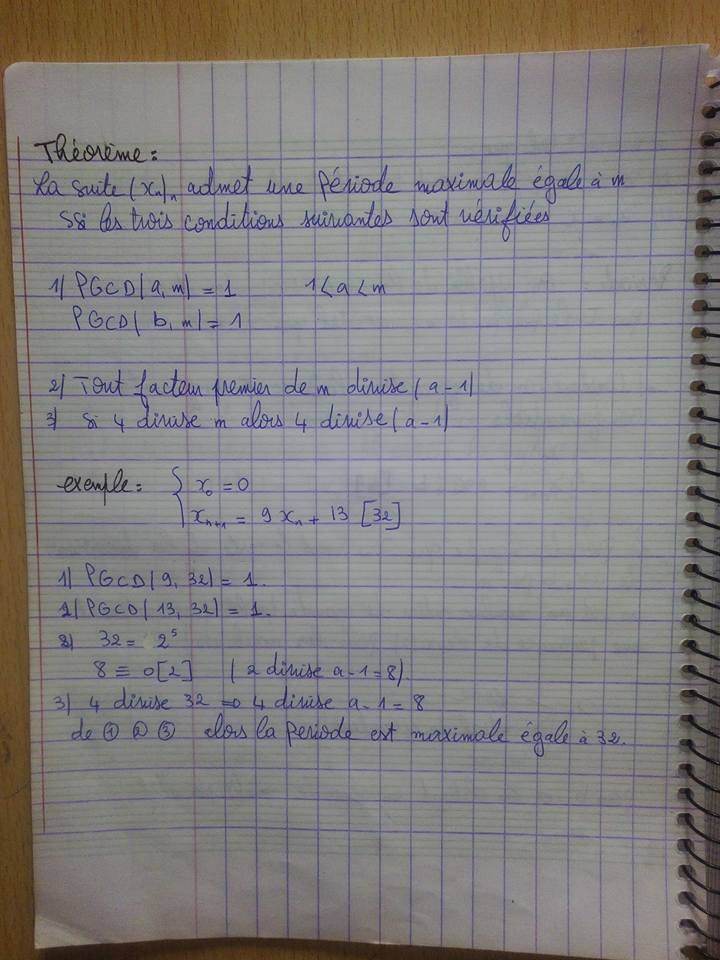 Théorème :
La suite (xn)n admet une période maximale égale à m
SSi les trois conditions suivantes sont vérifiées
1) PGCD(a, m) = 1 1 < a < m
PGCD(b, m) = 1
2) Tout facteur premier de m divise (a-1)
3) Si 4 divise m alors 4 divise (a-1)
exemple : { x₀ = 0
xn+1 = 9 xn + 13 [32]
1) PGCD(9, 32) = 1.
1) PGCD(13, 32) = 1.
2) 32 = 2⁵
8 ≡ 0[2] (2 divise a-1=8).
3) 4 divise 32 ⇒ 4 divise a-1=8
de ① ② ③ alors la période est maximale égale à 32.